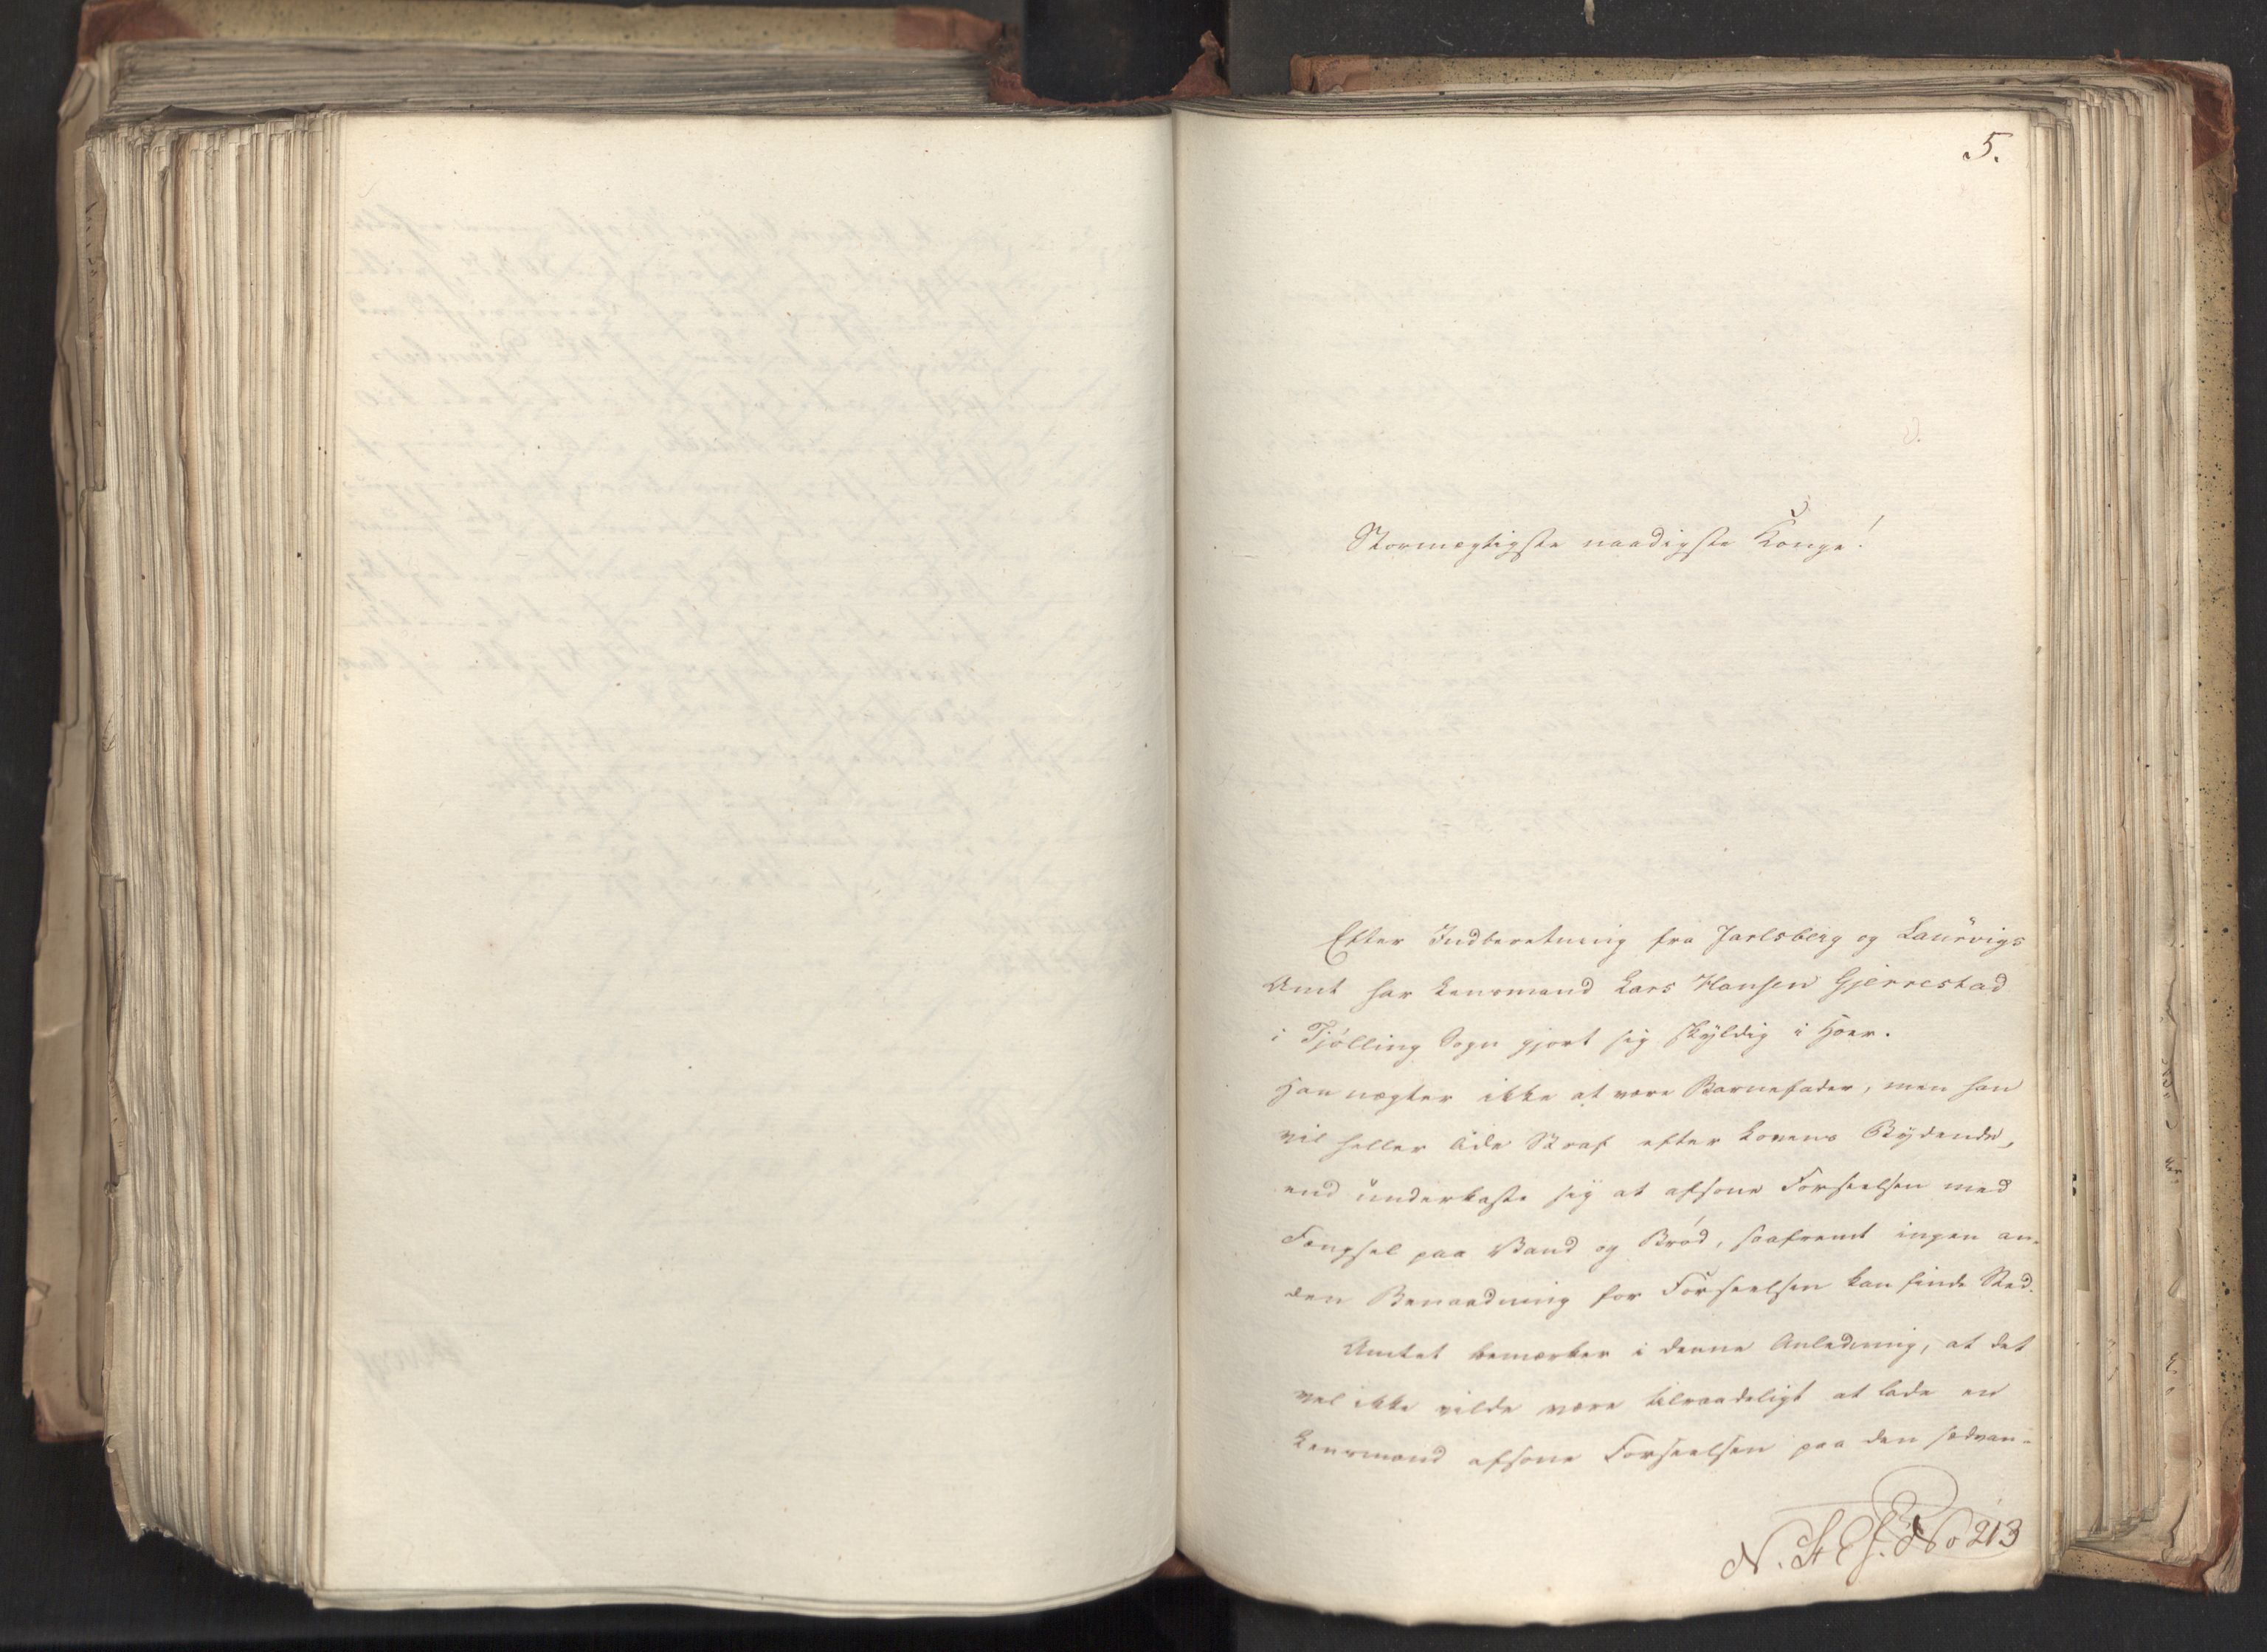 5.
Stormægtigste naadigste Konge!
Efter Indberetning fra Jarlsberg og Laurvigs
Amt har Lensmand Lars Hansen Gjerrestad
i Tjølling Sogn gjort sig skyldig i Hoer.
Han nægter ikke at være Barnefader, men han
vil heller lide Straf efter Lovens Bydende,
end underkaste sig at afsone Forseelsen med
Fængsel paa Vand og Brød, saafremt ingen an-
den Benaadning for Forseelsen kan finde Sted.
Amtet bemærker i denne Anledning, at det
vel ikke vilde være tilraadeligt at lade en
Lensmand afsone Forseelsen paa den sædvan-
No 213